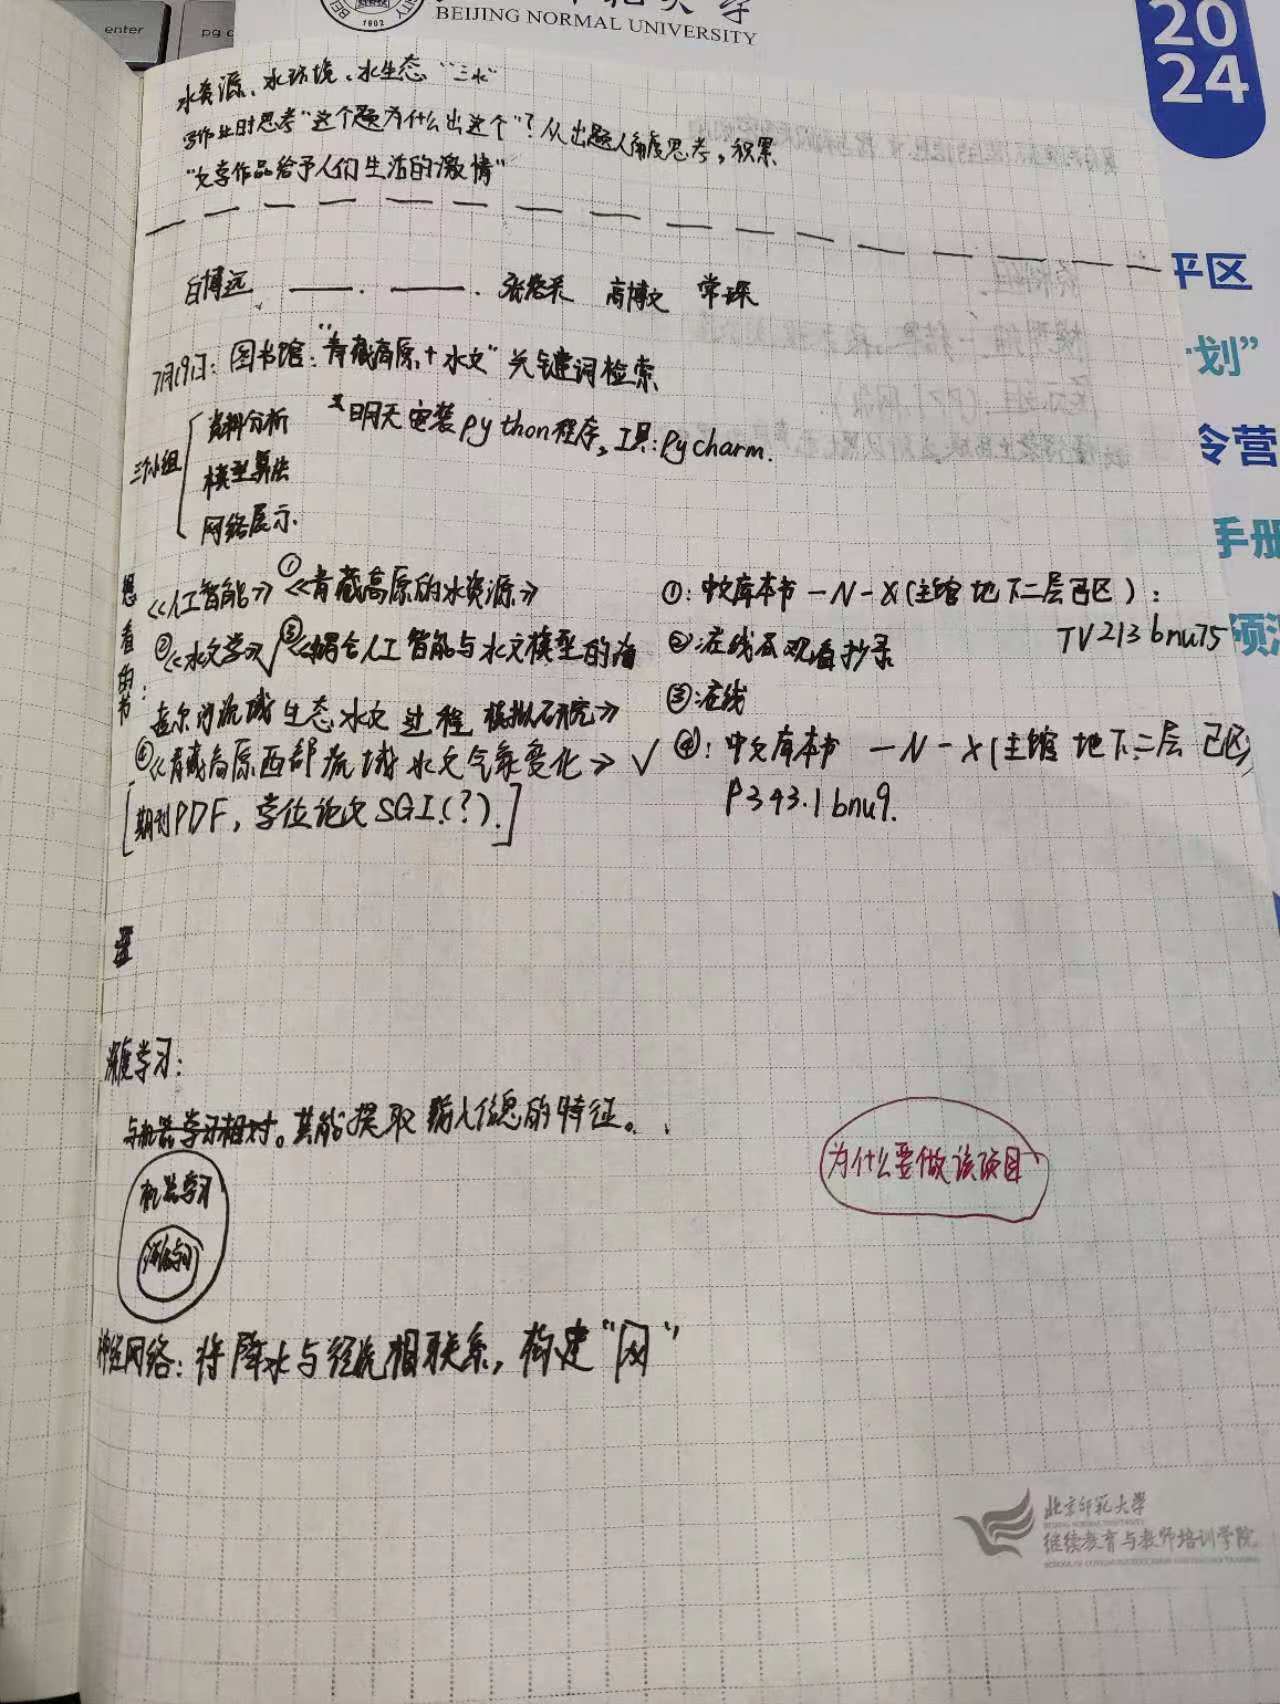 enter
pg
1902
BEIJING NORMAL UNIVERSITY
20
24
水资源、水环境、水生态 "三水"
写作业时思考"这个题为什么出这个"？从出题人角度思考，积累
"文学作品给予人们生活的激情"
平区
白博远 高博文 常琛
划"
7月19日：图书馆："青藏高原+水文"关键词检索
三个小组 资料分析
模型算法
网络展示.
*明天安装python程序，工具：Pycharm.
令营
手册
想看的书：
《人工智能》 ①《青藏高原的水资源》
②《水文学》√ ③《耦合人工智能与水文模型的海
流域生态水文过程模拟研究》
④《青藏高原西部流域水文气象变化》√
[期刊PDF，学位论文SGI.(?).]
①：中文库本书—N-X(主馆 地下二层 己区)：
TV213 bnu75
②：在线
③：在线
④：中文库本书 —N-X(主馆 地下二层 己区)
P343.1 bnu9.
深度学习：
与机器学习相对。其能提取输入信息的特征。
机器学习
深度学习
为什么要做该项目
神经网络：将降水与径流相联系，构建"网"
北京师范大学
继续教育与教师培训学院